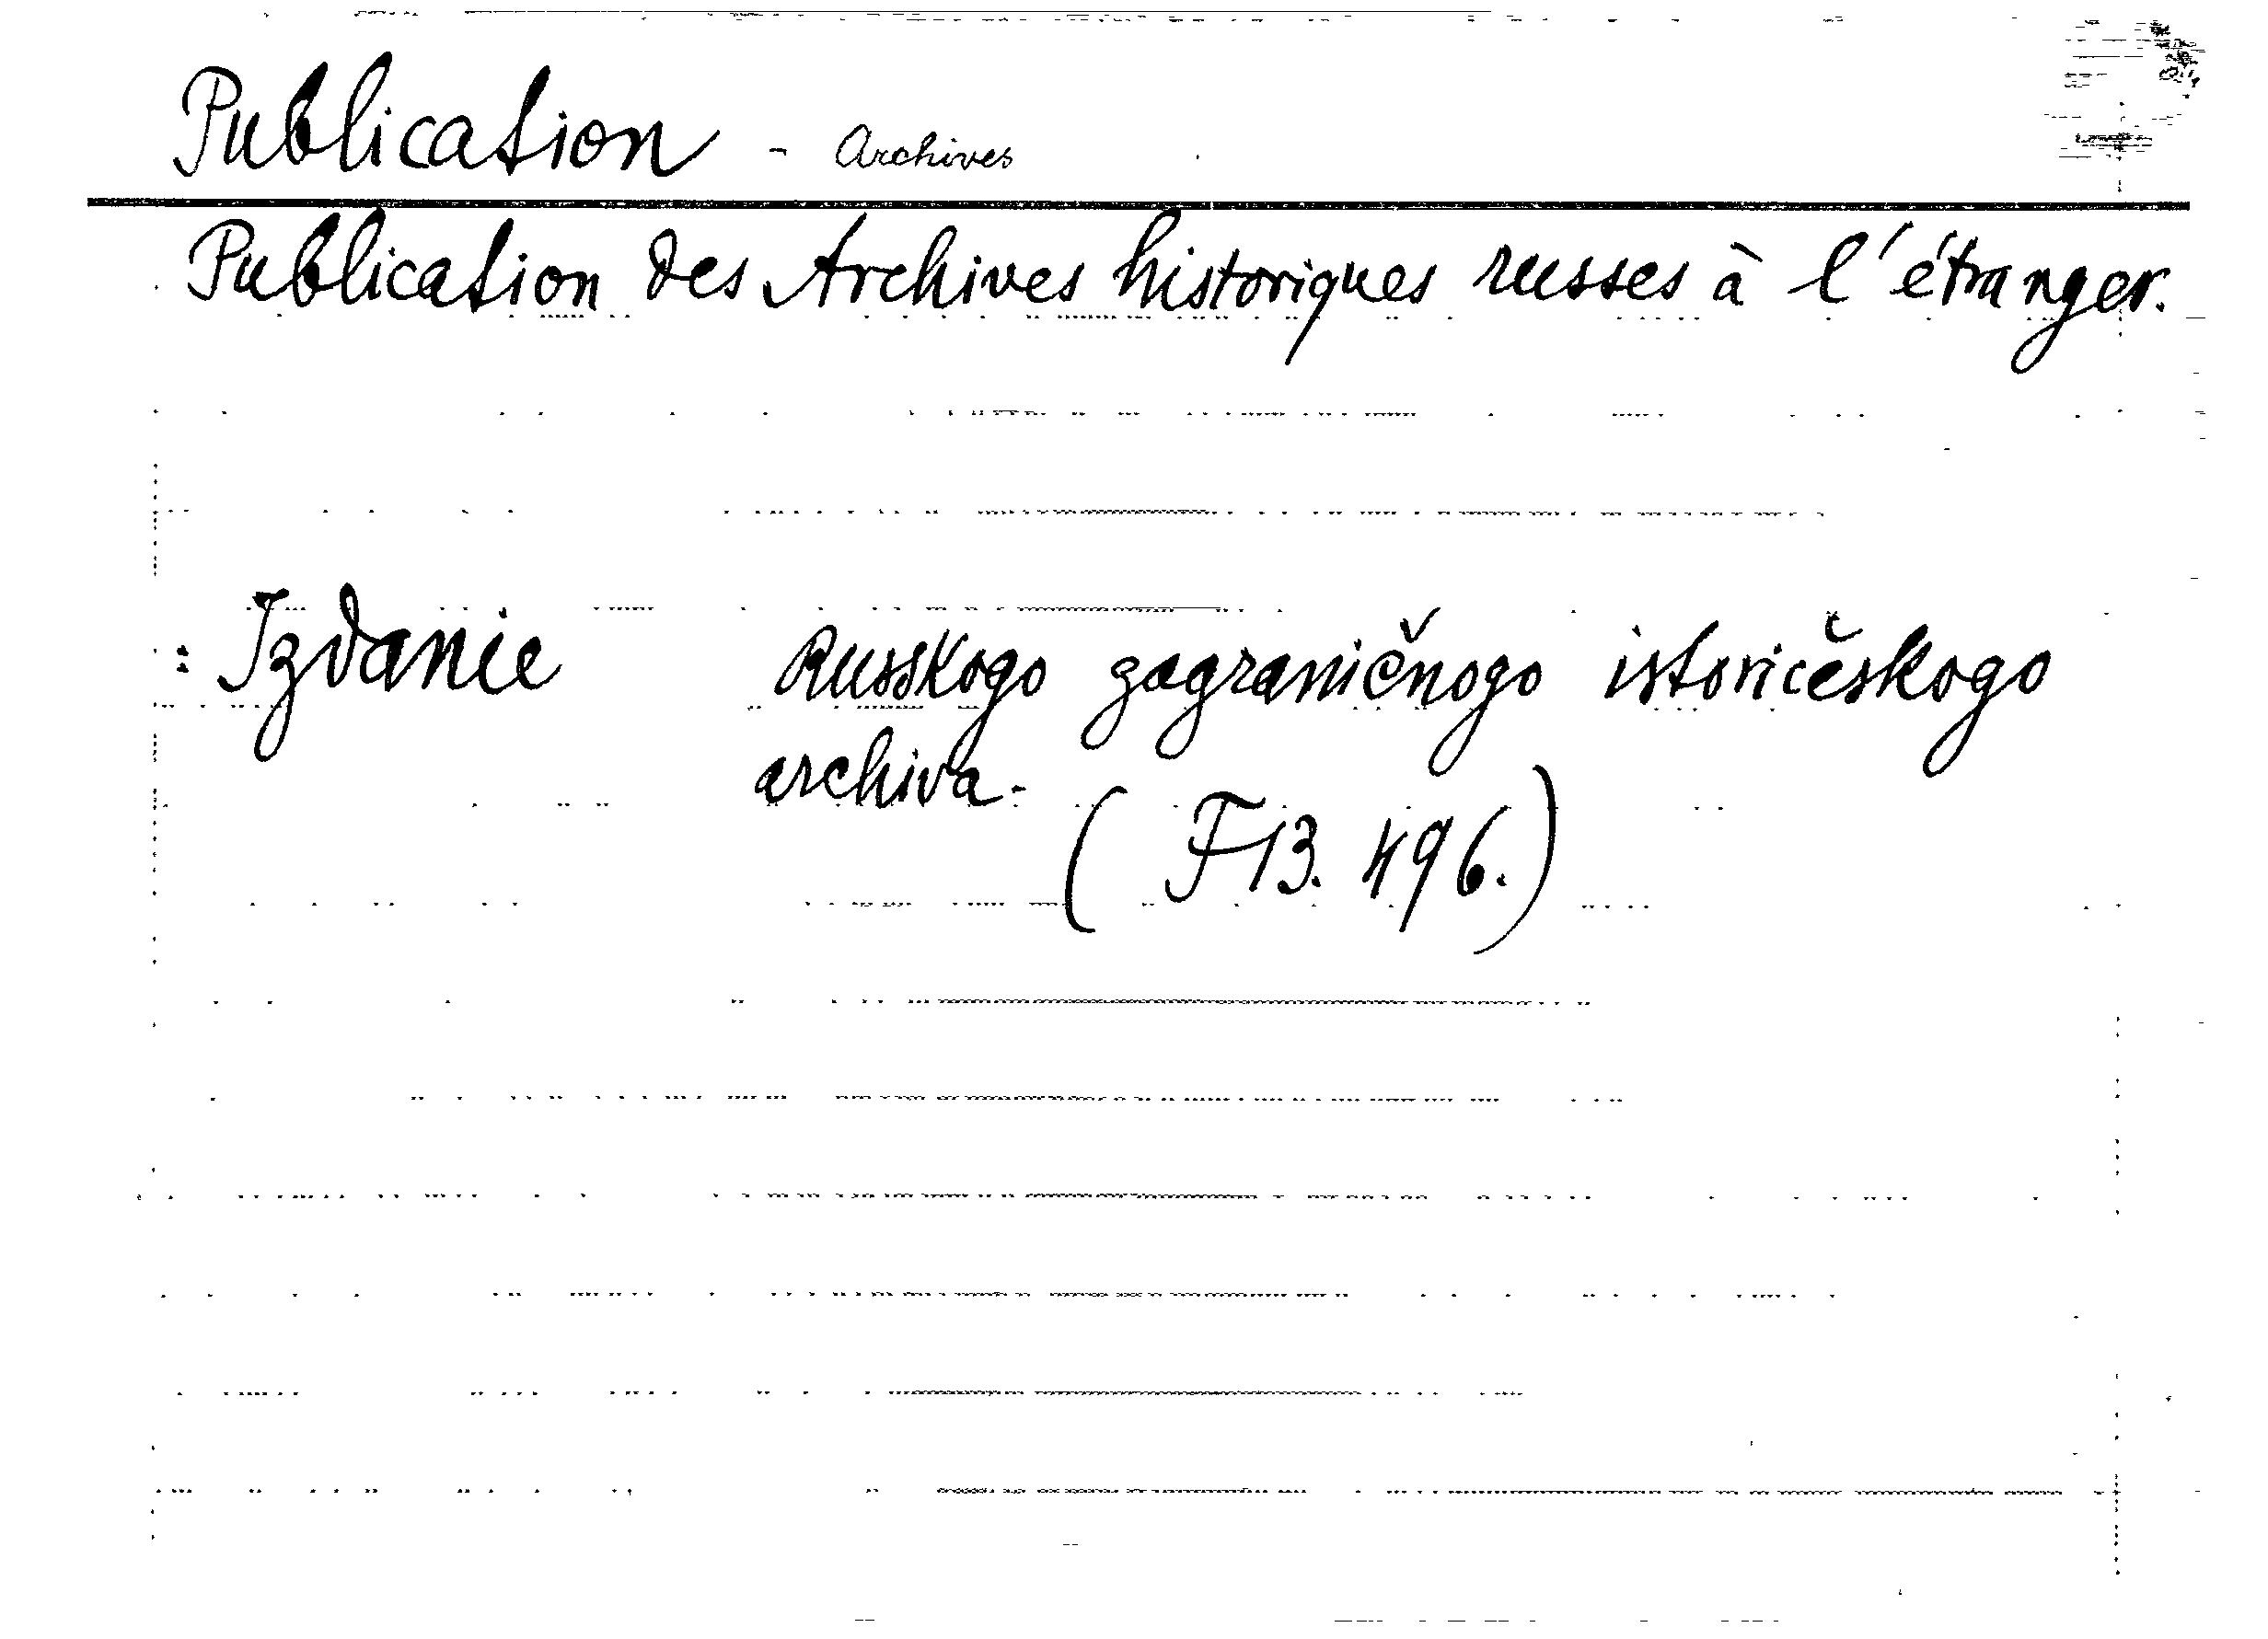 Publication - Archives
Publication des Archives historiques russes à l'étranger.
: Izdanie Russkogo zagraničnogo istoričeskogo
archiva.
( F13. 496.)